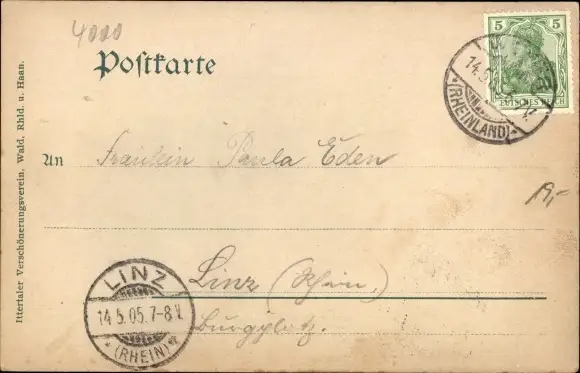 4000
5 5
DEUTSCHES REICH
14.5.
(RHEINLAND)
Postkarte
An Fräulein Paula Eden
19,-
Linz (Rhein)
Burgplatz.
LINZ
14.5.05.7-8V.
* (RHEIN) *
Ittertaler Verschönerungsverein. Wald, Rhld. u. Haan.